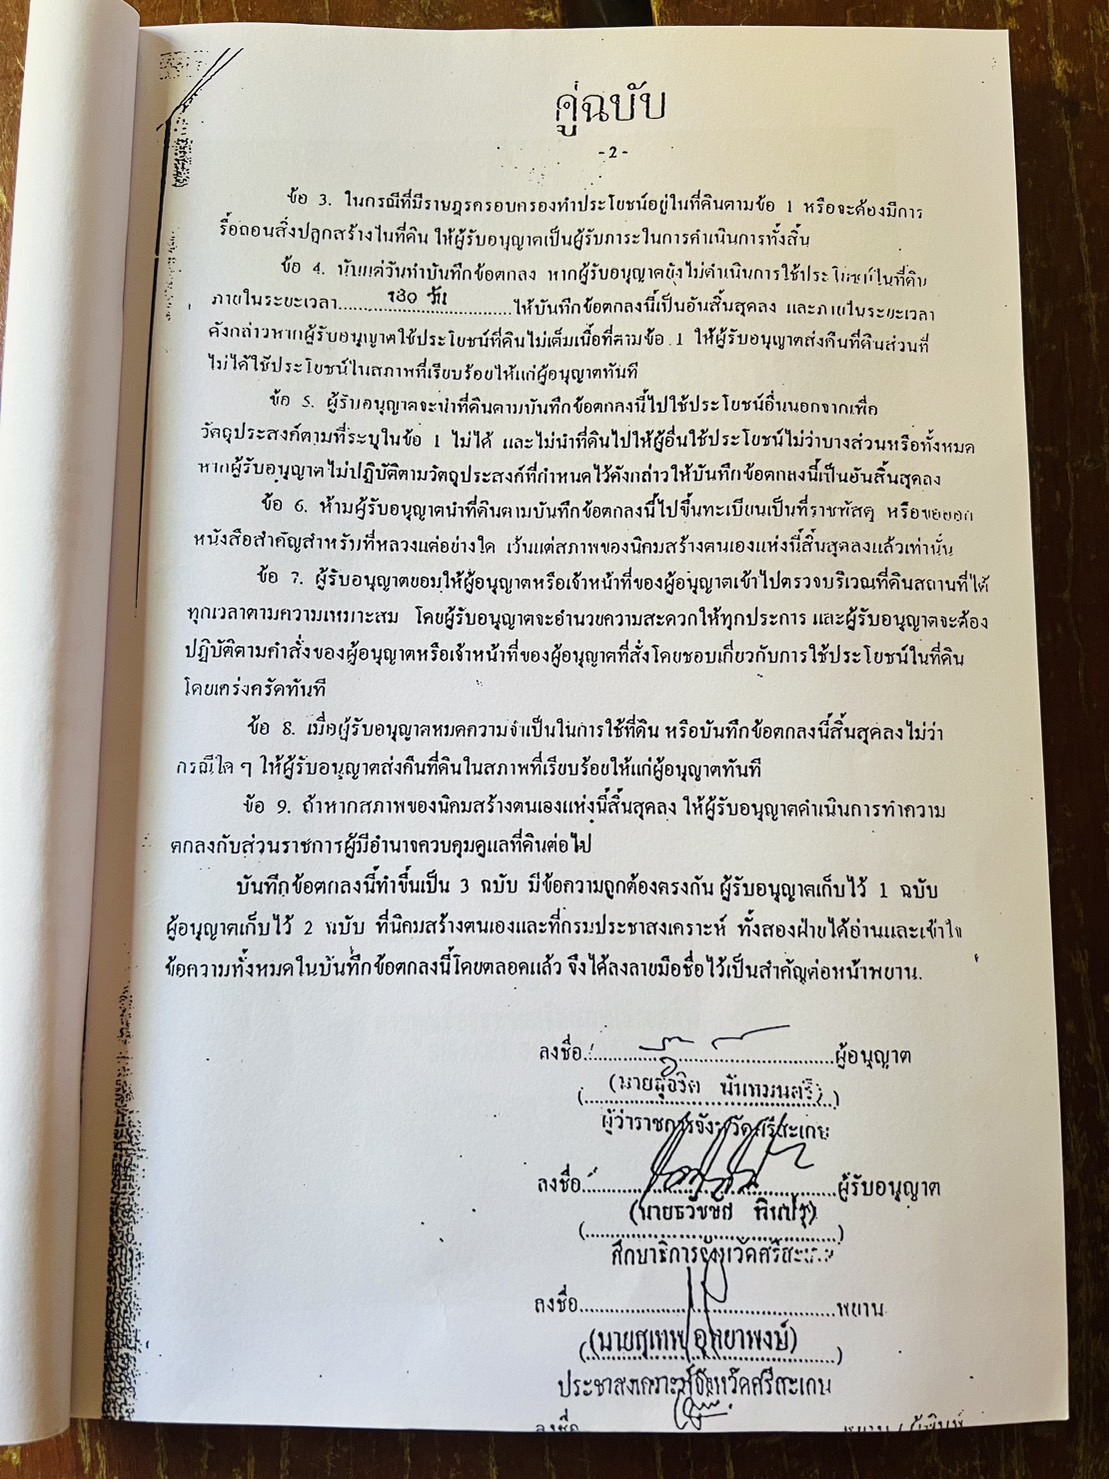 คู่ฉบับ
-2-
ข้อ 3. ในกรณีที่มีราษฎรครอบครองทำประโยชน์อยู่ในที่ดินตามข้อ 1 หรือจะต้องมีการ
รื้อถอนสิ่งปลูกสร้างในที่ดิน ให้ผู้รับอนุญาตเป็นผู้รับภาระในการดำเนินการทั้งสิ้น
ข้อ 4. นับแต่วันทำบันทึกข้อตกลง หากผู้รับอนุญาตยังไม่ดำเนินการใช้ประโยชน์ในที่ดิน
ภายในระยะเวลา.....180 วัน.....ให้บันทึกข้อตกลงนี้เป็นอันสิ้นสุดลง และภายในระยะเวลา
ดังกล่าวหากผู้รับอนุญาตใช้ประโยชน์ที่ดินไม่เต็มเนื้อที่ตามข้อ 1 ให้ผู้รับอนุญาตส่งคืนที่ดินส่วนที่
ไม่ได้ใช้ประโยชน์ในสภาพที่เรียบร้อยให้แก่ผู้อนุญาตทันที
ข้อ 5. ผู้รับอนุญาตจะนำที่ดินตามบันทึกข้อตกลงนี้ไปใช้ประโยชน์อื่นนอกจากเพื่อ
วัตถุประสงค์ตามที่ระบุในข้อ 1 ไม่ได้ และไม่นำที่ดินไปให้ผู้อื่นใช้ประโยชน์ไม่ว่าบางส่วนหรือทั้งหมด
หากผู้รับอนุญาตไม่ปฏิบัติตามวัตถุประสงค์ที่กำหนดไว้ดังกล่าวให้บันทึกข้อตกลงนี้เป็นอันสิ้นสุดลง
ข้อ 6. ห้ามผู้รับอนุญาตนำที่ดินตามบันทึกข้อตกลงนี้ไปขึ้นทะเบียนเป็นที่ราชพัสดุ หรือขอออก
หนังสือสำคัญสำหรับที่หลวงแต่อย่างใด เว้นแต่สภาพของนิคมสร้างตนเองแห่งนี้สิ้นสุดลงแล้วเท่านั้น
ข้อ 7. ผู้รับอนุญาตยอมให้ผู้อนุญาตหรือเจ้าหน้าที่ของผู้อนุญาตเข้าไปตรวจบริเวณที่ดินสถานที่ได้
ทุกเวลาตามความเหมาะสม โดยผู้รับอนุญาตจะอำนวยความสะดวกให้ทุกประการ และผู้รับอนุญาตจะต้อง
ปฏิบัติตามคำสั่งของผู้อนุญาตหรือเจ้าหน้าที่ของผู้อนุญาตที่สั่งโดยชอบเกี่ยวกับการใช้ประโยชน์ในที่ดิน
โดยเคร่งครัดทันที
ข้อ 8. เมื่อผู้รับอนุญาตหมดความจำเป็นในการใช้ที่ดิน หรือบันทึกข้อตกลงนี้สิ้นสุดลงไม่ว่า
กรณีใด ๆ ให้ผู้รับอนุญาตส่งคืนที่ดินในสภาพที่เรียบร้อยให้แก่ผู้อนุญาตทันที
ข้อ 9. ถ้าหากสภาพของนิคมสร้างตนเองแห่งนี้สิ้นสุดลง ให้ผู้รับอนุญาตดำเนินการทำความ
ตกลงกับส่วนราชการผู้มีอำนาจควบคุมดูแลที่ดินต่อไป
บันทึกข้อตกลงนี้ทำขึ้นเป็น 3 ฉบับ มีข้อความถูกต้องตรงกัน ผู้รับอนุญาตเก็บไว้ 1 ฉบับ
ผู้อนุญาตเก็บไว้ 2 ฉบับ ที่นิคมสร้างตนเองและที่กรมประชาสงเคราะห์ ทั้งสองฝ่ายได้อ่านและเข้าใจ
ข้อความทั้งหมดในบันทึกข้อตกลงนี้โดยตลอดแล้ว จึงได้ลงลายมือชื่อไว้เป็นสำคัญต่อหน้าพยาน.
ลงชื่อ..........ผู้อนุญาต
(นาย
ผู้ว่าราชการจังหวัดศรีสะเกษ
ลงชื่อ..........ผู้รับอนุญาต
(นายธวัชชัย
ศึกษาธิการจังหวัดศรีสะเกษ
ลงชื่อ..........พยาน
(นายสุเทพ อุทยาพงษ์)
ประชาสงเคราะห์จังหวัดศรีสะเกษ
ลงชื่อ พยาน / ผู้พิมพ์